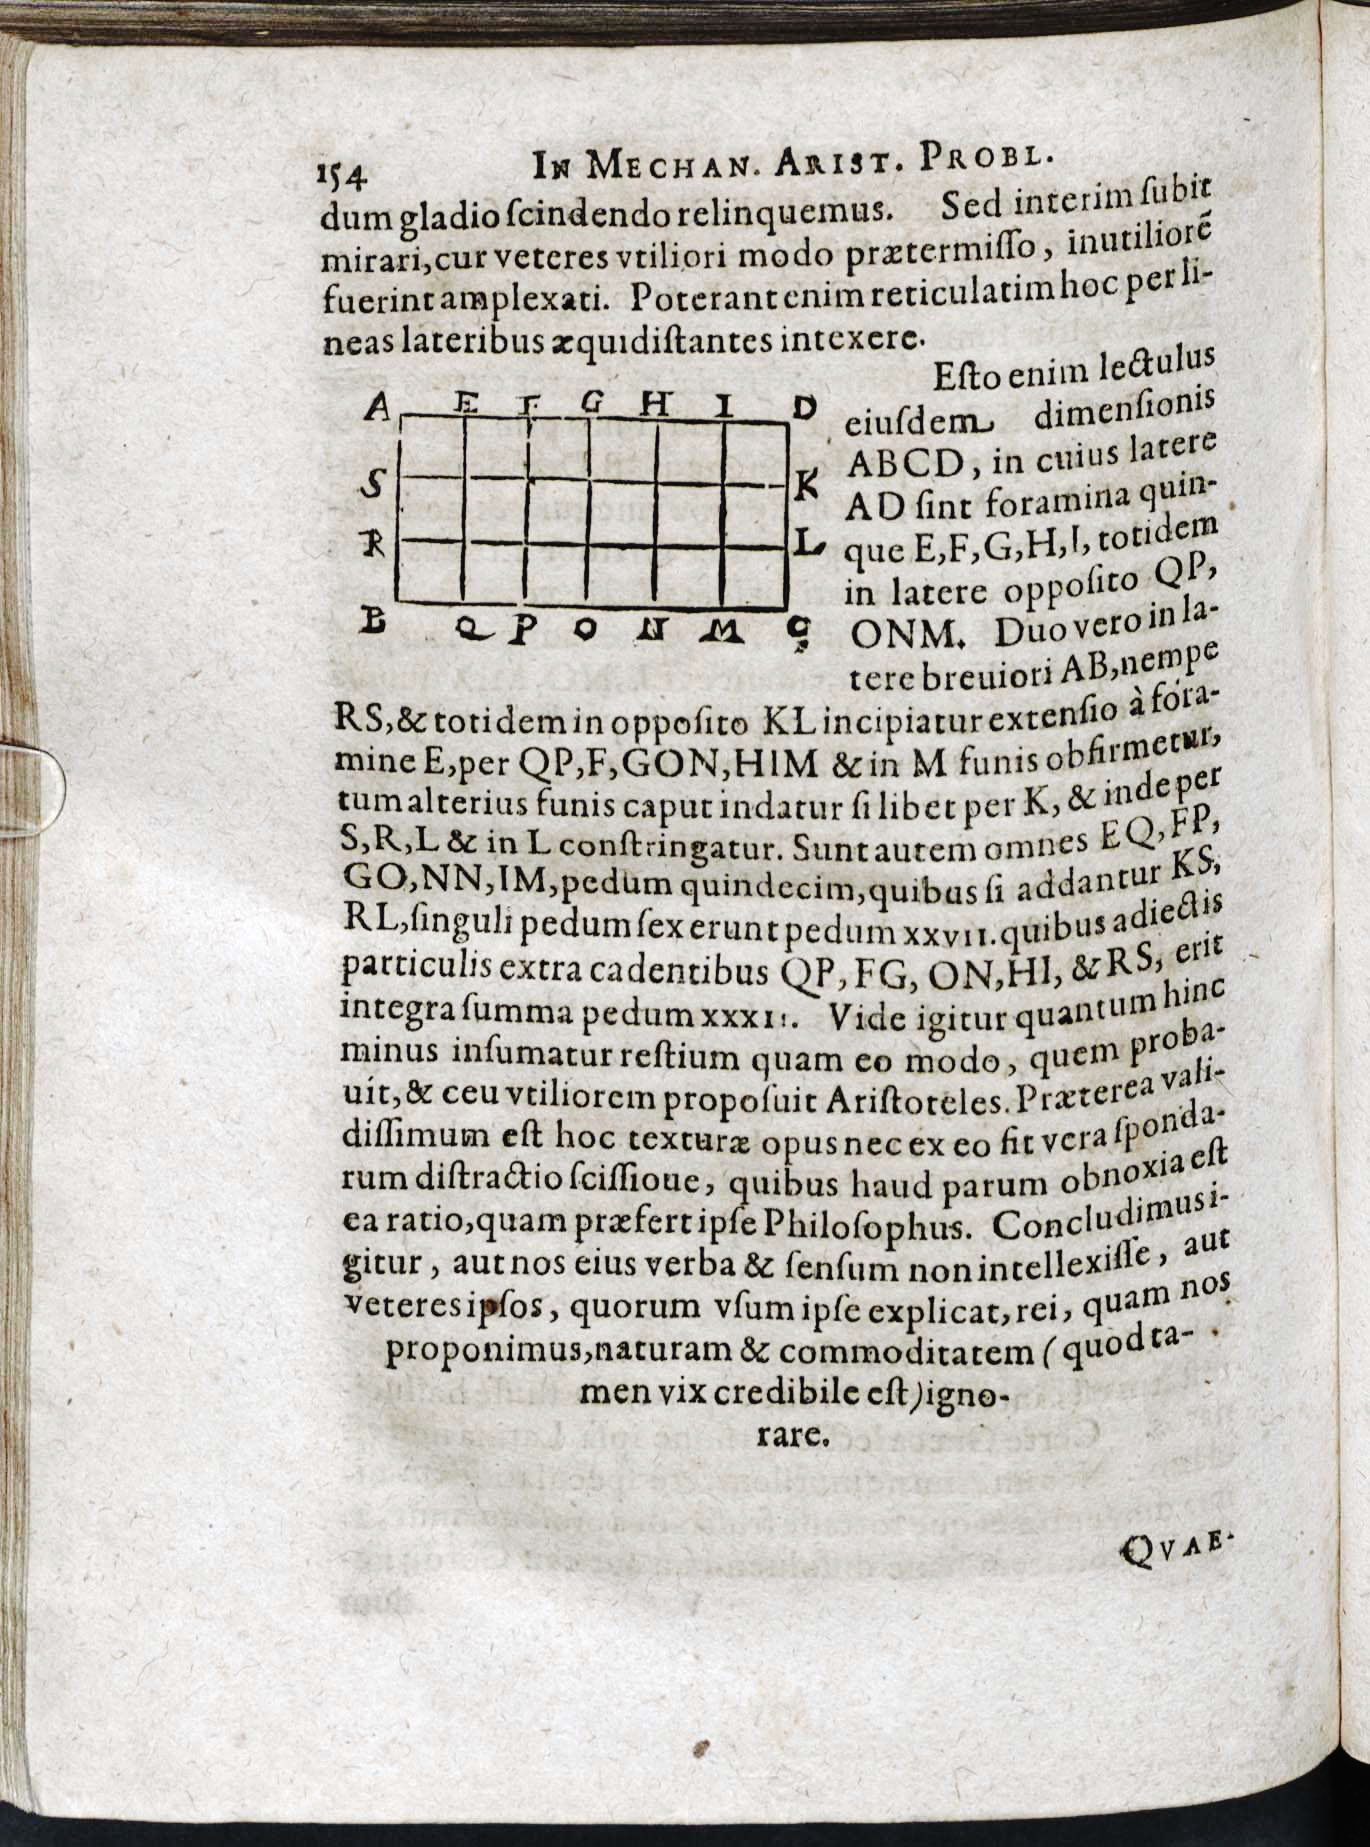 154 IN MECHAN. ARIST. PROBL.
dum gladio ſcindendo relinquemus. Sed interim ſubit
mirari, cur veteres vtiliori modo prætermiſſo, inutiliorē
fuerint amplexati. Poterant enim reticulatim hoc per li-
neas lateribus æquidiſtantes intexere.
A E F G H I D
S K
R L
B Q P O N M C
Eſto enim lectulus
eiuſdem dimenſionis
ABCD, in cuius latere
AD ſint foramina quin-
que E,F,G,H,I, totidem
in latere oppoſito QP,
ONM. Duo vero in la-
tere breuiori AB, nempe
RS, & totidem in oppoſito KL incipiatur extenſio à fora-
mine E, per QP, F, GON, HIM & in M funis obfirmetur,
tum alterius funis caput indatur ſi libet per K, & inde per
S, R, L & in L conſtringatur. Sunt autem omnes EQ, FP,
GO, NN, IM, pedum quindecim, quibus ſi addantur KS,
RL, ſinguli pedum ſex erunt pedum xxvii. quibus adiectis
particulis extra cadentibus QP, FG, ON, HI, & RS, erit
integra ſumma pedum xxxii. Vide igitur quantum hinc
minus inſumatur reſtium quam eo modo, quem proba-
uit, & ceu vtiliorem propoſuit Ariſtoteles. Præterea vali-
diſſimum eſt hoc texturæ opus nec ex eo fit vera ſponda-
rum diſtractio ſciſſioue, quibus haud parum obnoxia eſt
ea ratio, quam præfert ipſe Philoſophus. Concludimus i-
gitur, aut nos eius verba & ſenſum non intellexiſſe, aut
veteres ipſos, quorum vſum ipſe explicat, rei, quam nos
proponimus, naturam & commoditatem (quod ta-
men vix credibile eſt) igno-
rare.
QVAE-